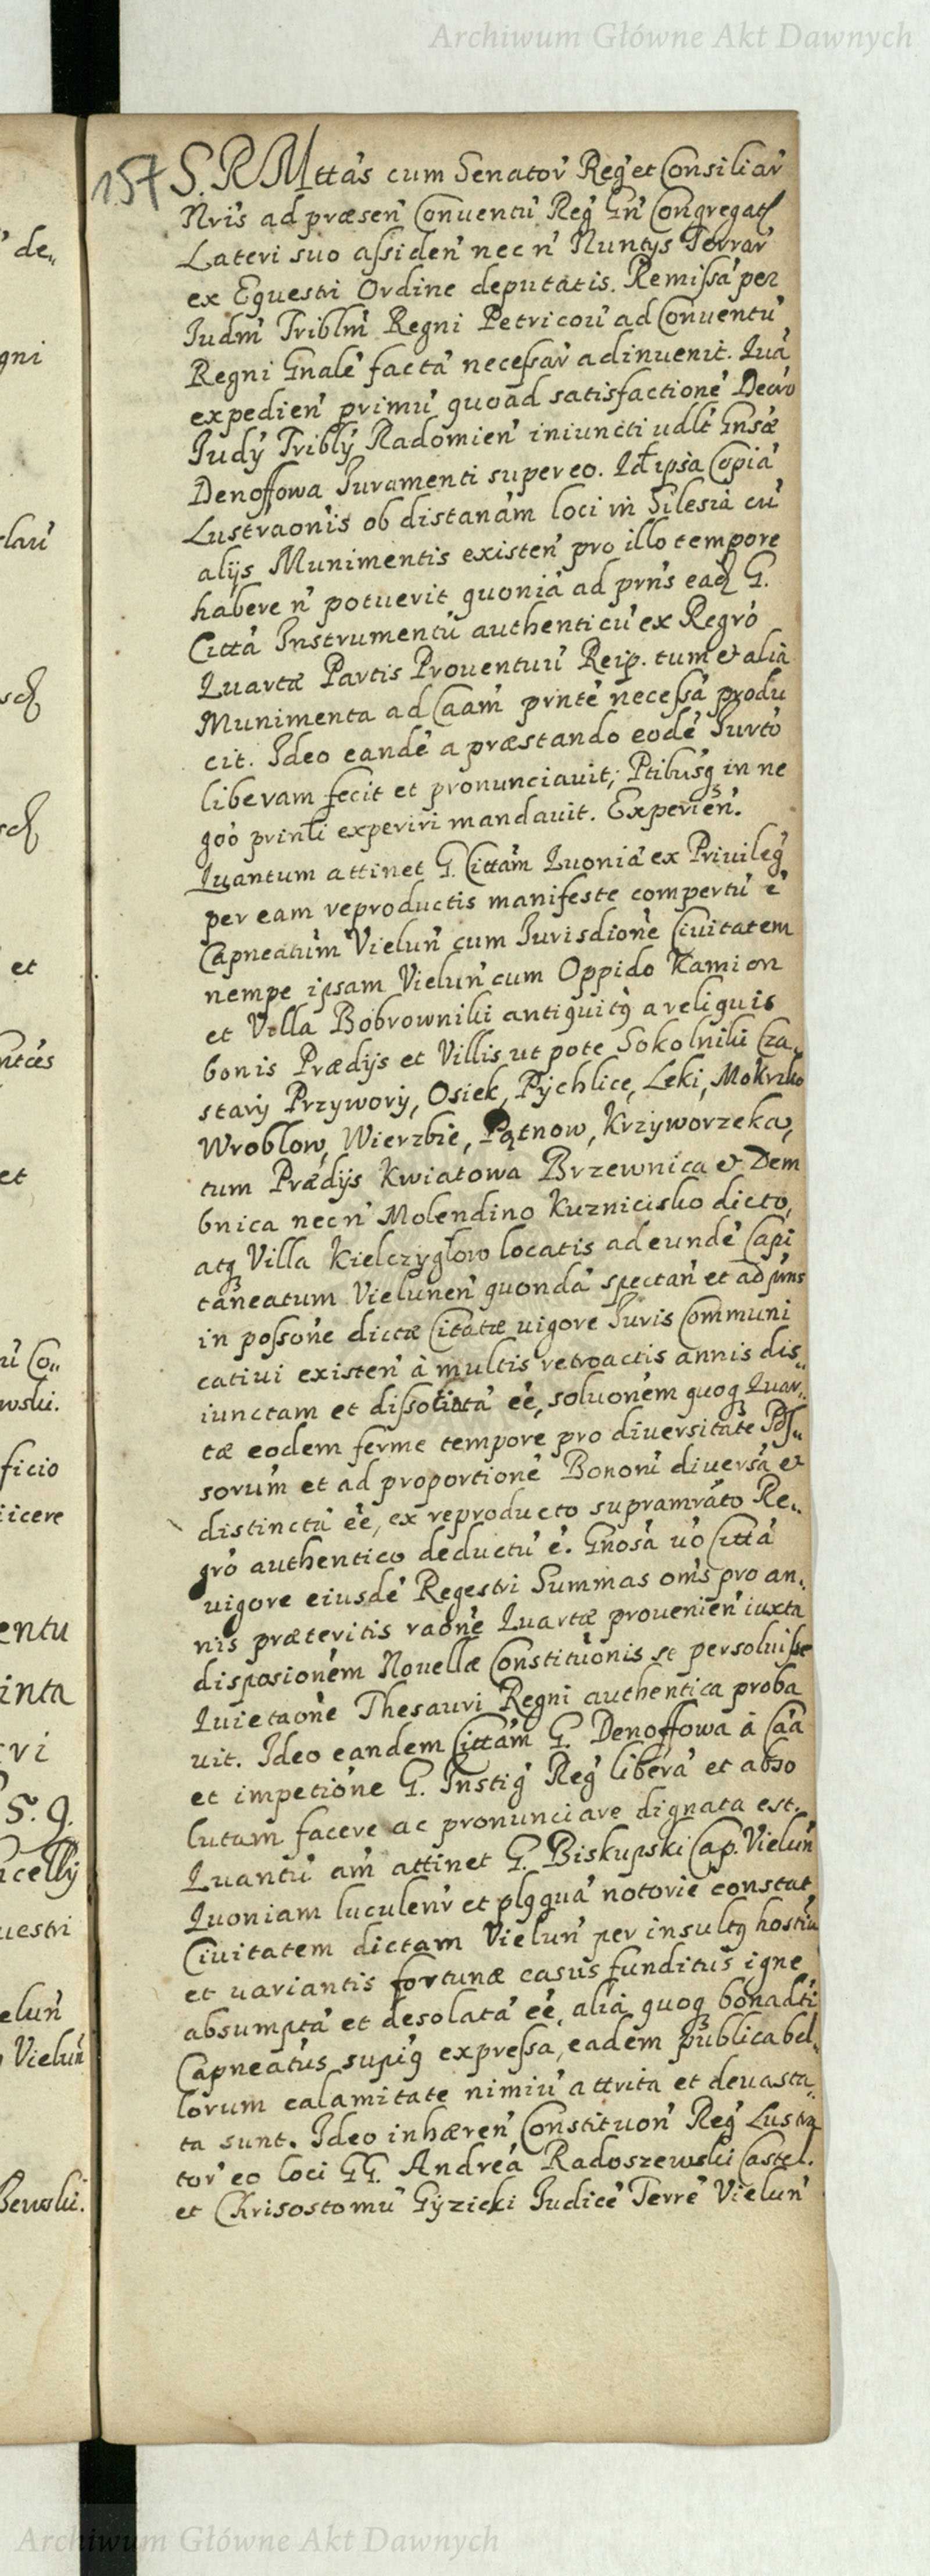 Archiwum Główne Akt Dawnych
157
S. R. Mttas cum Senator Reg et Consiliar
Nris ad præsen Conventu Reg Gn Congregat
Lateri suo assiden nec n Nuntys Terrar
ex Equestri Ordine deputatis. Remissa per
Iudm Triblm Regni Petricou ad Conuentu
Regni Gnale facta necessar adinuenit. Qua
expedien primu quoad satisfactione Decro
Iudÿ Triblÿ Radomien iniuncti vdlt Gnsæ
Denoffowa Iuramenti super eo. Id ipsa Copia
Lustraonis ob distanam loci in Silesia cu
alijs Munimentis existen pro illo tempore
habere n potuerit quonia ad prns ead G.
Citta Instrumentu authenticu ex Regro
Quartæ Partis Prouentuu Reip. tum et alia
Munimenta ad Caam prnte necessa produ
cit. Ideo eande a præstando eode Iurto
liberam fecit et pronunciauit, Ptibusq in ne
goo prinli experiri mandauit. Experien.
Quantum attinet G. Cittam Quonia ex Privileg
per eam reproductis manifeste compertu e
Capneatum Vielun cum Iurisdione Ciuitatem
nempe ipsam Vielun cum Oppido Kamion
et Villa Bobrowniki antiquitq a reliquis
bonis Prædijs et Villis ut pote Sokolniki Cza„
starÿ Przyworÿ, Osiek, Pÿchlice, Leki, Mokrzko
Wroblow, Wierzbie, Pątnow, Krzyworzeka,
tum Prædijs Kwiatowa Brzewnica et Dem
bnica necn Molendino Kuznicisko dicto,
atq Villa Kielczyglow locatis ad eunde Capi
taneatum Vielunen quonda spectan et ad prns
in possone dictæ Citatæ uigore Iuris Communi
catiui existen à multis retroactis annis dis„
iunctam et dissolută ee, soluonem quoq Quar„
tæ eodem ferme tempore pro diuersitate Pos„
sorum et ad proportione Bonoru diuersa et
distinctu ee, ex reproducto supramrato Re„
gro authentico deductu e. Gnosa uo Citta
uigore eiusde Regestri Summas oms pro an„
nis præteritis raone Quartæ prouenien iuxta
disposionem Nouellæ Constituonis se persoluisse
Quietaone Thesauri Regni authentica proba
uit. Ideo eandem Cittam G. Denoffowa à Caa
et impetione G. Instig Reg libera et abso
lutam facere ac pronunciare dignata est.
Quantu am attinet G. Biskupski Cap. Vielun
Quoniam luculenr et plqqua notorie constat
Ciuitatem dictam Vielun per insultq hostiu
et variantis fortunæ casus funditus igne
absumpta et desolata ee, alia quoq bona dti
Capneatus supiq expressa, eadem publica bel„
lorum calamitate nimiu attrita et deuasta„
ta sunt. Ideo inhæren Constituon Reg Lustra
tor eo loci GG. Andrea Radoszewski Castel.
et Chrisostomu Gÿzicki Iudice Terre Vielun
Archiwum Główne Akt Dawnych